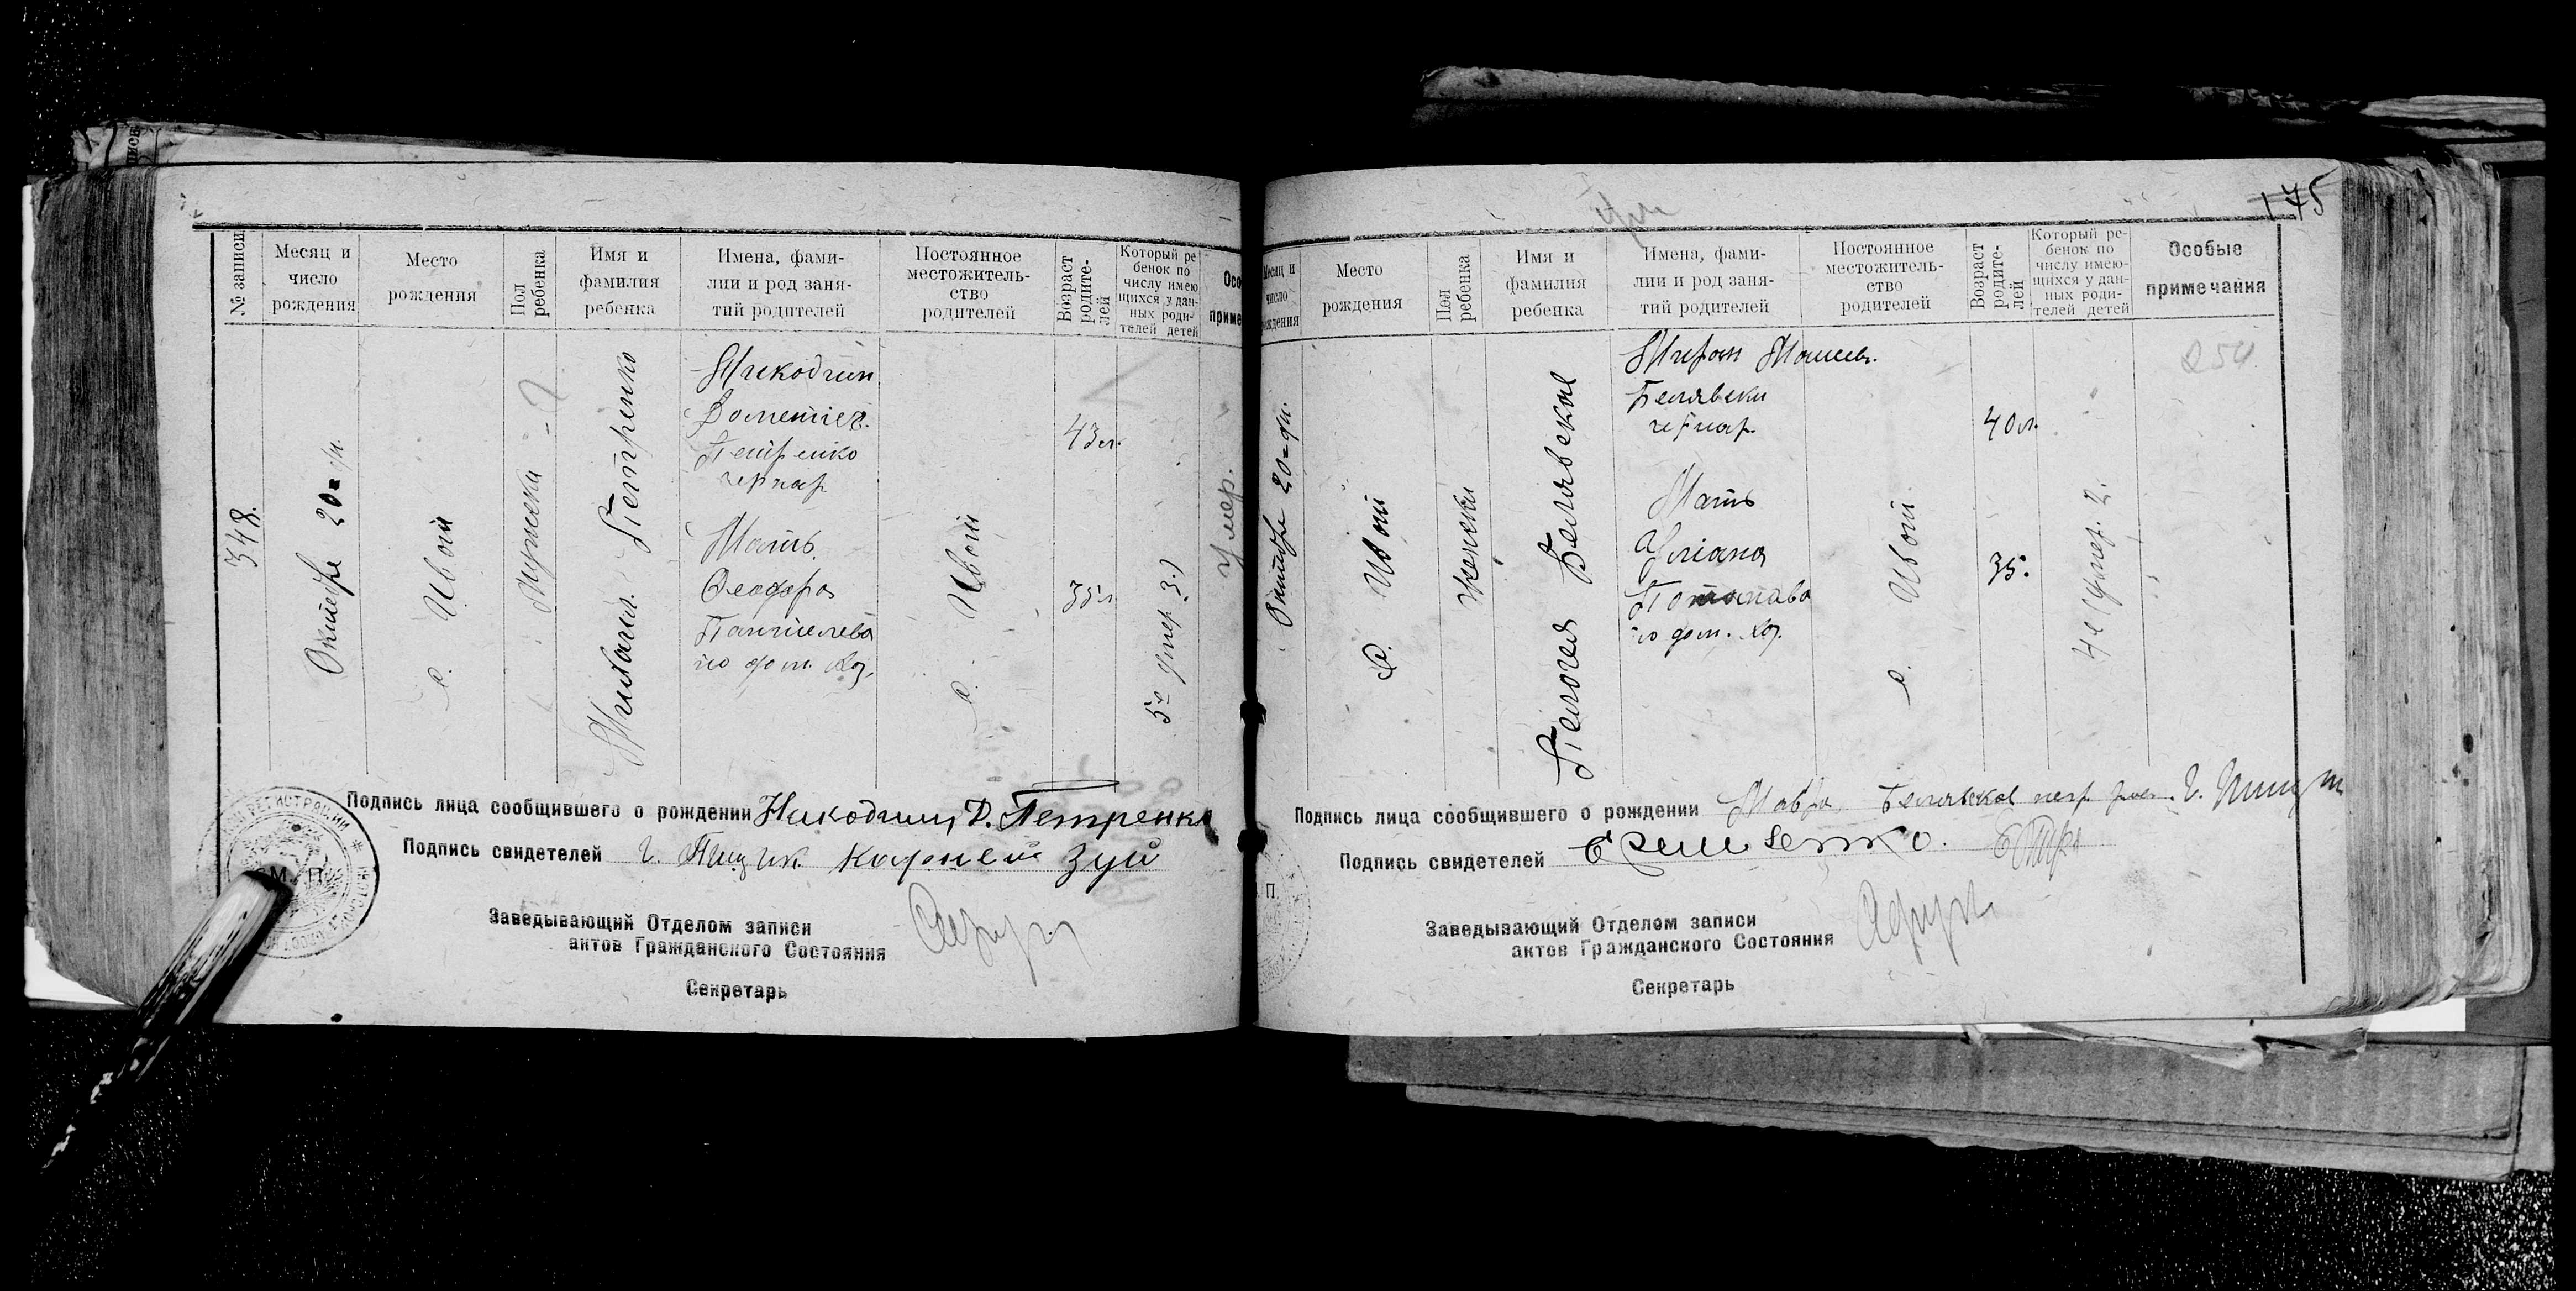 № записи
Месяц и
число
рождения
Место
рождения
Пол
ребенка
Имя и
фамилия
ребенка
Имена, фами-
лии и род заня-
тий родителей
Постоянное
местожитель-
ство
родителей
Возраст
родите-
лей
Который ре
бенок по
числу имею
щихся у дан-
ных роди-
телей детей
Осо
приме
348.
Октября 20-
с. Ивой
Мужски
Михаил Петренко
Никодим
Дометіев.
Петренко
Мать
Феодора
Пантелева
по дом. хоз.
с. Ивой
43 л.
35 л
5е умер 3.)
Умер.
Подпись лица сообщившего о рождении Никодим Д. Петренко
Подпись свидетелей Корней Зуй
М. П.
Заведывающий Отделом записи
актов Гражданского Состояния
Секретарь
175
Месяц и
число
рождения
Место
рождения
Пол
ребенка
Имя и
фамилия
ребенка
Имена, фами-
лии и род заня-
тий родителей
Постоянное
местожитель-
ство
родителей
Возраст
родите-
лей
Который ре-
бенок по
числу имею-
щихся у дан-
ных роди-
телей детей
Особые
примечания
254.
Октября 20-
с. Ивой
Женски
Пелагея Белявская
Мирон
Белявски
Мать
Улiана
по дом. хоз.
с. Ивой
40 л.
35.
4е (умер. 2.
Подпись лица сообщившего о рождении Мавра Белявская
Подпись свидетелей
П.
Заведывающий Отделом записи
актов Гражданского Состояния
Секретарь